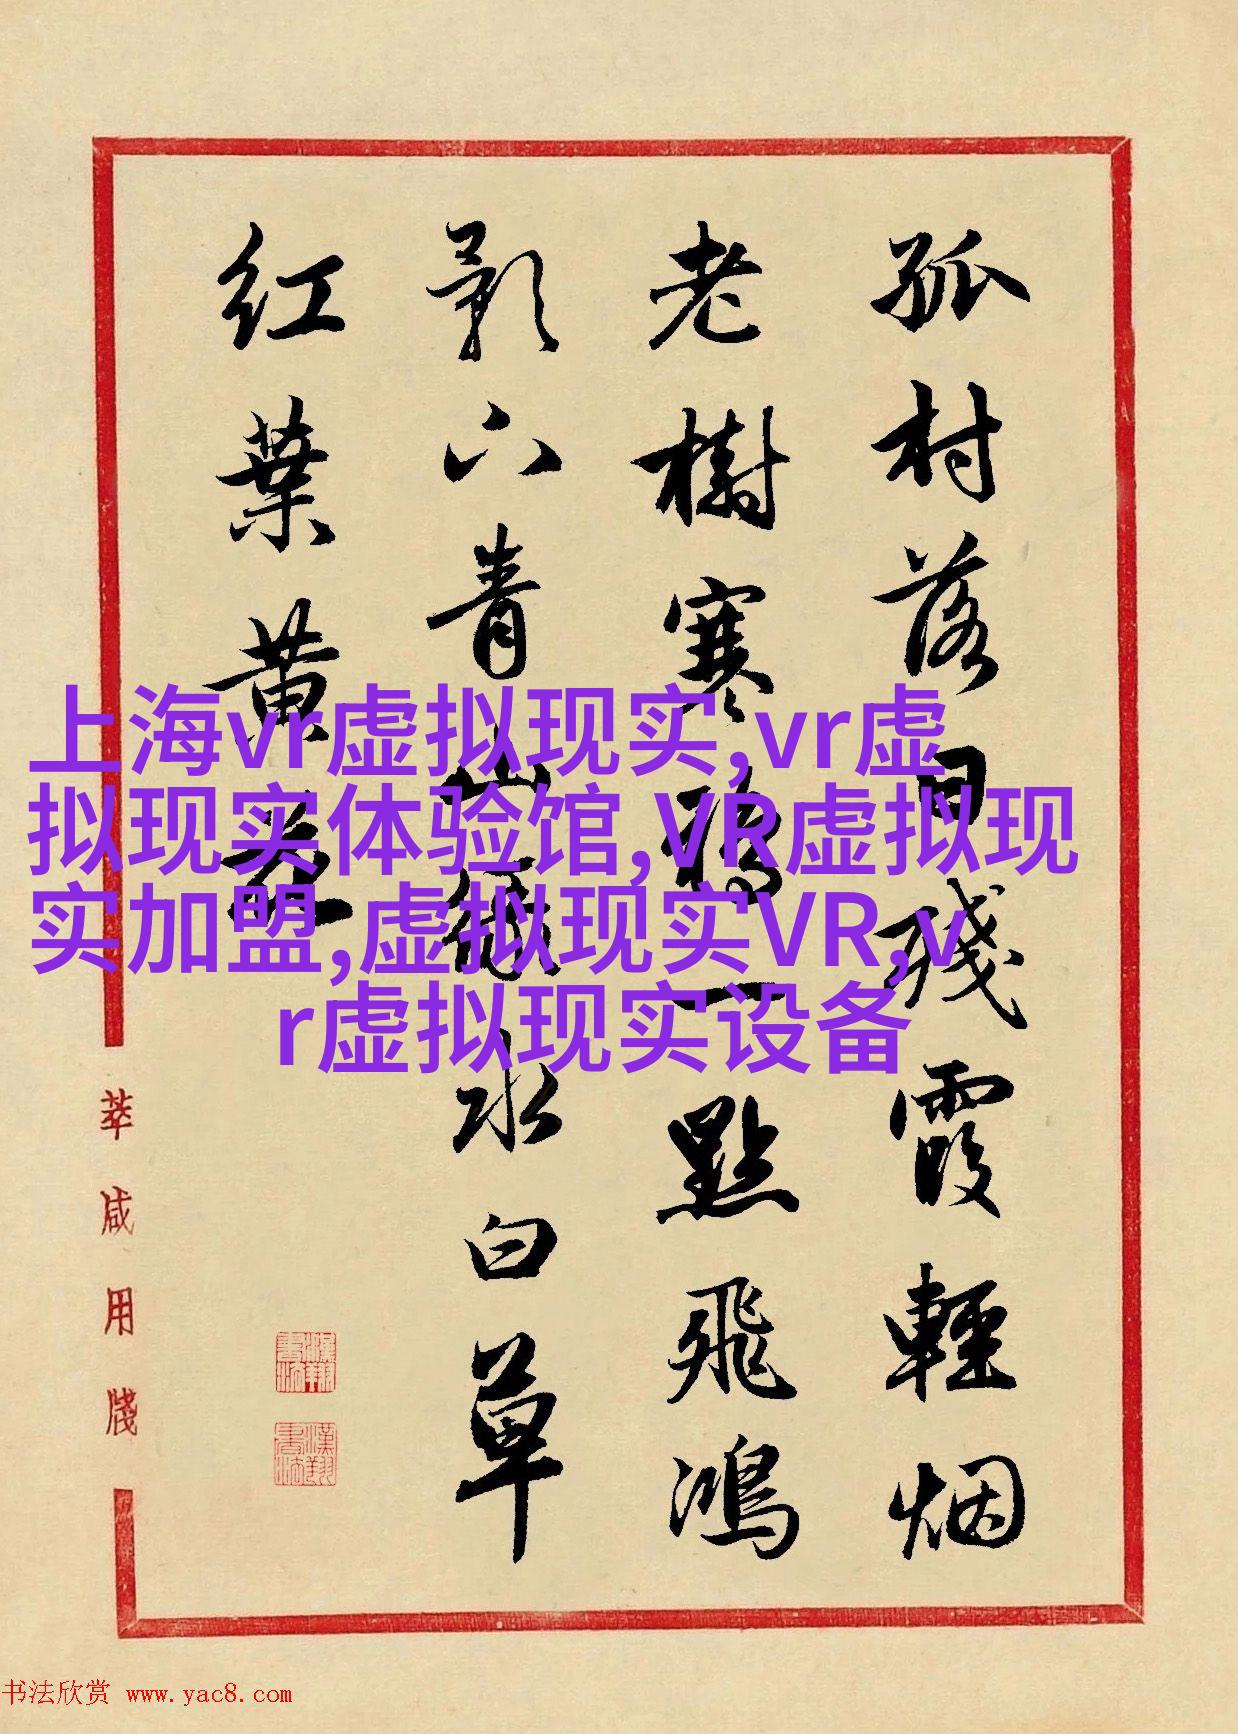 孤村落日残霞輕烟
老樹寒鴉一點飛鴻
影下青山綠水白草
红葉黄花
上海vr虚拟现实,vr虚
拟现实体验馆,VR虚拟现
实加盟,虚拟现实VR,v
r虚拟现实设备
萃咸用牋
书法欣赏 www.yac8.com